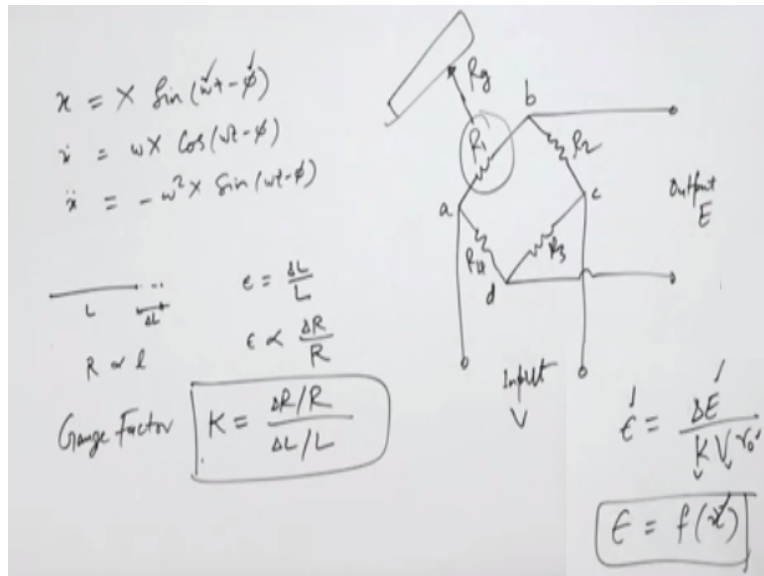 x = X Sin (ωt - φ)
ẋ = ωX Cos (ωt - φ)
ẍ = - ω² X Sin (ωt - φ)
L
ΔL
e = ΔL / L
R ∝ l
ϵ ∝ ΔR / R
Gauge Factor
K = ΔR/R / ΔL/L
Rg
R1
b
R2
a
c
R4
R3
d
Output
E
Input
V
ϵ = ΔE / K V r₀
ϵ = f(ẍ)